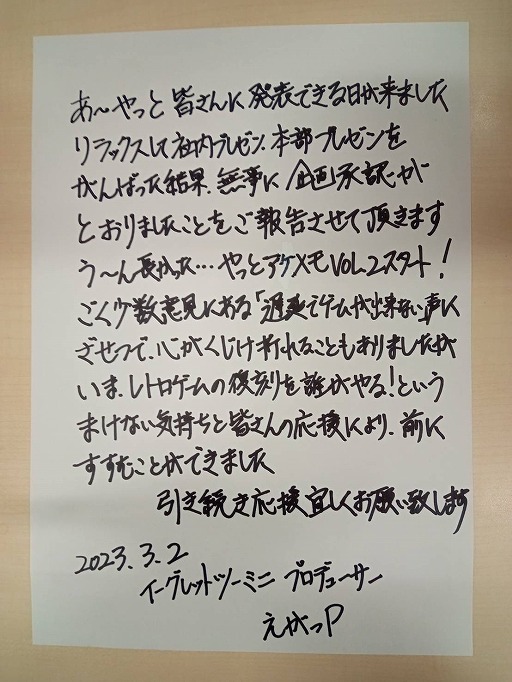 あ～やっと皆さんに発表できる日が来ました
リラックスして社内プレゼン、本部プレゼンを
がんばった結果、無事に企画承認が
とおりましたことをご報告させて頂きます
う～ん長かった…やっとアケメモVOL.2スタート！
ごく少数意見にある「遅延でゲームが出来ない」声に
ざせつで、心がくじけ折れることもありましたが
いま、レトロゲームの復刻を誰がやる！という
まけない気持ちと皆さんの応援により、前に
すすむことができました
引き続き応援宜しくお願い致します
2023.3.2
イーグレットツーミニ プロデューサー
えがっP